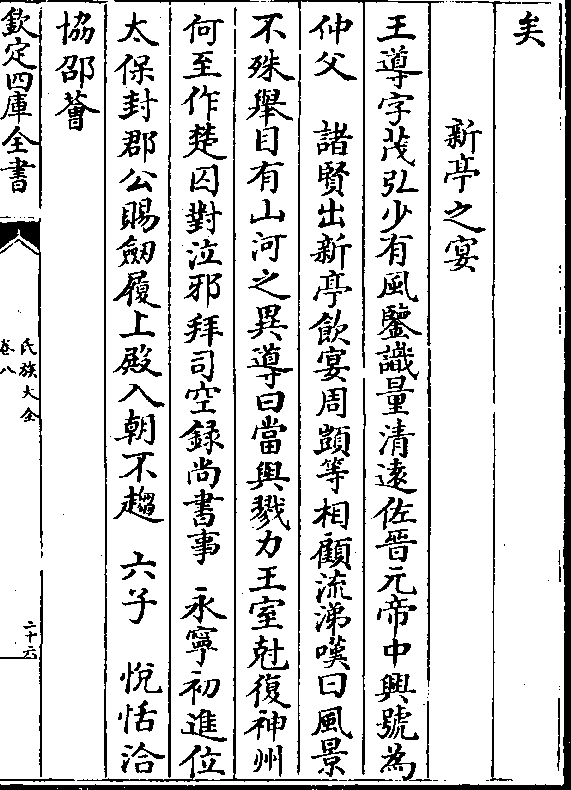 矣
新亭之宴
王導字茂弘少有風鑒識量清遠佐晉元帝中興號為
仲父　諸賢出新亭飲宴周顗等相顧流涕嘆曰風景
不殊舉目有山河之異導曰當與戮力王室尅復神州
何至作楚囚對泣邪拜司空録尚書事　永寧初進位
太保封郡公賜劒履上殿入朝不趨　六子　悅恬洽
協邵薈
欽定四庫全書
氏族大全
卷八
二十六